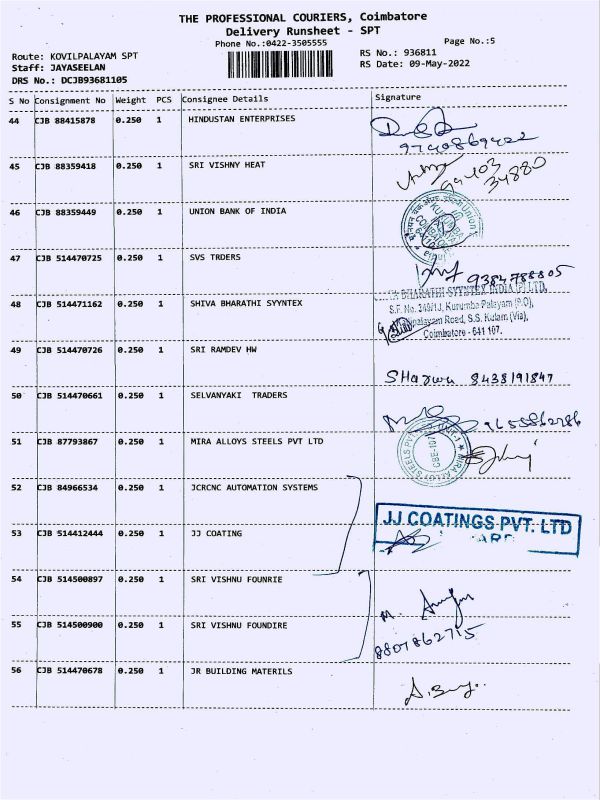 THE PROFESSIONAL COURIERS, Coimbatore
Delivery Runsheet - SPT
Phone No.:0422-3505555
Page No.:5
Route: KOVILPALAYAM SPT
RS No.: 936811
Staff: JAYASEELAN
RS Date: 09-May-2022
DRS No.: DCJB93681105
S No Consignment No Weight PCS Consignee Details Signature
44 CJB 88415878 0.250 1 HINDUSTAN ENTERPRISES
9740869422
45 CJB 88359418 0.250 1 SRI VISHNY HEAT
94403
34880
46 CJB 88359449 0.250 1 UNION BANK OF INDIA
47 CJB 514470725 0.250 1 SVS TRDERS
9384788805
48 CJB 514471162 0.250 1 SHIVA BHARATHI SYYNTEX
BHARATHI SYYNTEX INDIA (P) LTD,
S.F. No. 349/1J, Kurumba Palayam (P.O),
Road, S.S. Kulam (Via),
Coimbatore - 641 107.
49 CJB 514470726 0.250 1 SRI RAMDEV HW
8438191847
50 CJB 514470661 0.250 1 SELVANYAKI TRADERS
9655862286
51 CJB 87793867 0.250 1 MIRA ALLOYS STEELS PVT LTD
52 CJB 84966534 0.250 1 JCRCNC AUTOMATION SYSTEMS
53 CJB 514412444 0.250 1 JJ COATING
JJ COATINGS PVT. LTD
54 CJB 514500897 0.250 1 SRI VISHNU FOUNRIE
55 CJB 514500900 0.250 1 SRI VISHNU FOUNDIRE
8807862715
56 CJB 514470678 0.250 1 JR BUILDING MATERILS